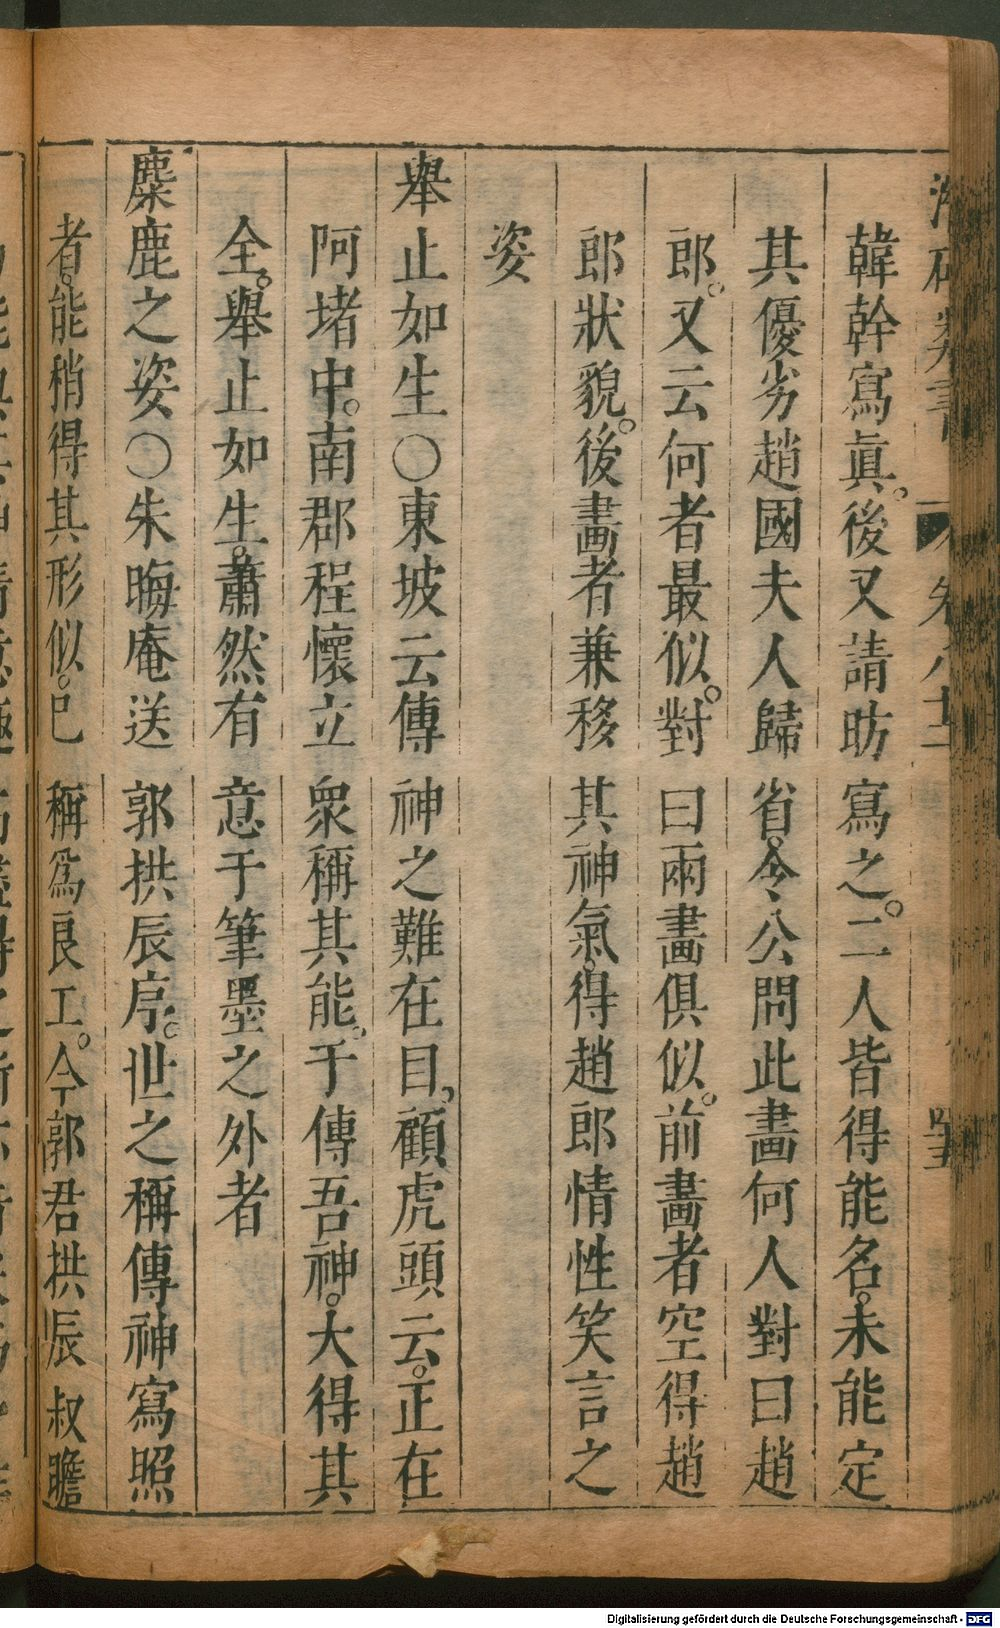 韓幹寫眞。後又請昉寫之。二人皆得能名。未能定
其優劣趙國夫人歸省。令公問此畫何人對曰趙
郎。又云何者最似。對曰兩畫俱似。前畫者空得趙
郎狀貌。後畫者兼移其神氣。得趙郎情性笑言之
姿
舉止如生○東坡云傳神之難在目。顧虎頭云。正在
阿堵中。南郡程懷立衆稱其能。于傳吾神。大得其
全。舉止如生。蕭然有意于筆墨之外者
麋鹿之姿○朱晦庵送郭拱辰序。世之稱傳神寫照
者。能稍得其形似。已稱爲良工。今郭君拱辰叔瞻
Digitalisierung gefördert durch die Deutsche Forschungsgemeinschaft - DFG